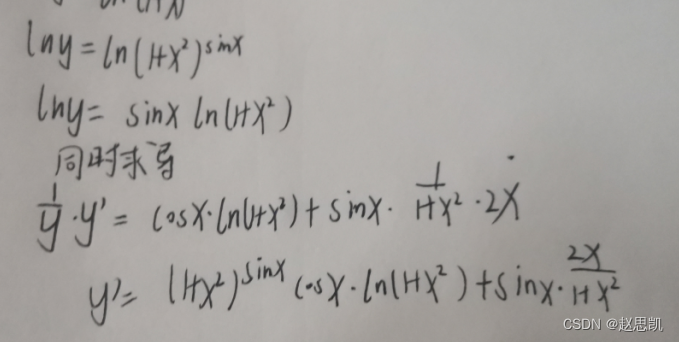 lny = ln(1+x²)^sinx
lny = sinx ln(1+x²)
同时求导
1/y · y' = cosx·ln(1+x²) + sinx · 1/1+x² · 2x
y' = (1+x²)^sinx cosx·ln(1+x²) + sinx · 2x/1+x²
CSDN @赵思凯